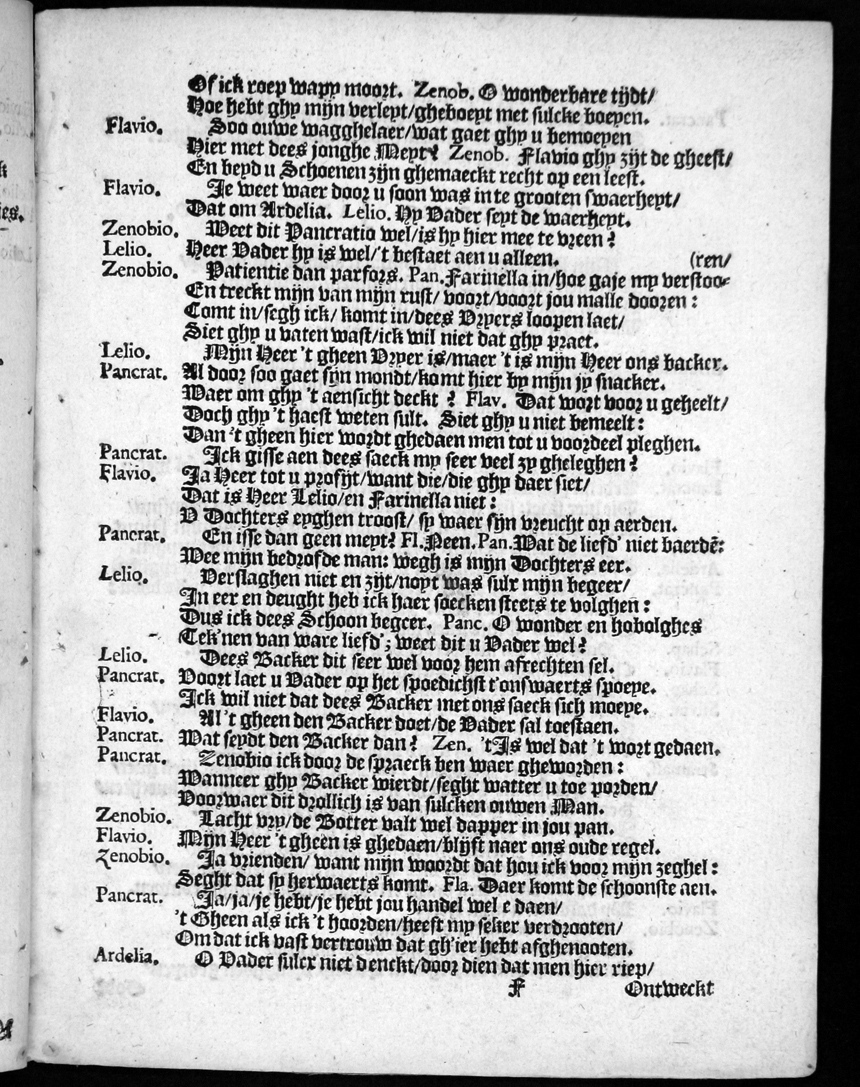 Of ick roep wapp moort. Zenob. O wonderbare tijdt/
Hoe hebt ghy mijn verleyt/gheboeyt met sulcke boeyen.
Flavio. Soo ouwe wagghelaer/wat gaet ghy u bemoeyen
Hier met dees jonghe Meyt? Zenob. Flavio ghy zijt de gheest/
En beyd u Schoenen zijn ghemaeckt recht op een leest.
Flavio. Je weet waer door u soon was in te grooten swaerheyt/
Dat om Ardelia. Lelio. Hy Vader seyt de waerheyt.
Zenobio. Weet dit Pancratio wel/is hy hier mee te vreen?
Lelio. Heer Vader hy is wel/'t bestaet aen u alleen. (ren/
Zenobio. Patientie dan parfors. Pan. Farinella in/hoe gaje my verstoo-
En treckt mijn van mijn rust/voort/voort jou malle dooren:
Comt in/segh ick/komt in/dees Vryers loopen laet/
Siet ghy u vaten wast/ick wil niet dat ghy praet.
Lelio. Mijn Heer 't gheen Vryer is/maer 't is mijn Heer ons backer.
Pancrat. Al door soo gaet sijn mondt/komt hier by mijn jy snacker.
Waer om ghy 't aensicht deckt? Flav. Dat wort voor u geheelt/
Doch ghy 't haest weten sult. Siet ghy u niet bemeelt:
Dan 't gheen hier wordt ghedaen men tot u voordeel pleghen.
Pancrat. Ick gisse aen dees saeck my seer veel zy gheleghen?
Flavio. Ja Heer tot u profijt/want die/die ghy daer siet/
Dat is Heer Lelio/en Farinella niet:
V Dochters eyghen troost/sy waer sijn vreucht op aerden.
Pancrat. En isse dan geen meyt? Fl. Neen. Pan. Wat de liefd' niet baerdē:
Wee mijn bedrofde man: wegh is mijn Dochters eer.
Lelio. Verslaghen niet en zijt/noyt was sulx mijn begeer/
In eer en deught heb ick haer soecken steets te volghen:
Dus ick dees Schoon begeer. Panc. O wonder en hobolghes
Tek'nen van ware liefd'; weet dit u Vader wel?
Lelio. Dees Backer dit seer wel voor hem afrechten sel.
Pancrat. Voort laet u Vader op het spoedichst t'onswaerts spoeye.
Ick wil niet dat dees Backer met ons saeck sich moeye.
Flavio. Al 't gheen den Backer doet/de Vader sal toestaen.
Pancrat. Wat seydt den Backer dan? Zen. 'tIs wel dat 't wort gedaen.
Pancrat. Zenobio ick door de spraeck ben waer gheworden:
Wanneer ghy Backer wierdt/seght watter u toe porden/
Voorwaer dit drollich is van sulcken ouwen Man.
Zenobio. Lacht vry/de Botter valt wel dapper in jou pan.
Flavio. Mijn Heer 't gheen is ghedaen/blijft naer ons oude regel.
Zenobio. Ja vrienden/want mijn woordt dat hou ick voor mijn zeghel:
Seght dat sy herwaerts komt. Fla. Daer komt de schoonste aen.
Pancrat. Ja/ja/je hebt/je hebt jou handel wel e daen/
't Gheen als ick 't hoorden/heeft my seker verdrooten/
Om dat ick vast vertrouw dat gh'ier hebt afghenooten.
Ardelia. O Vader sulcx niet denckt/door dien dat men hier riep/
F Ontweckt